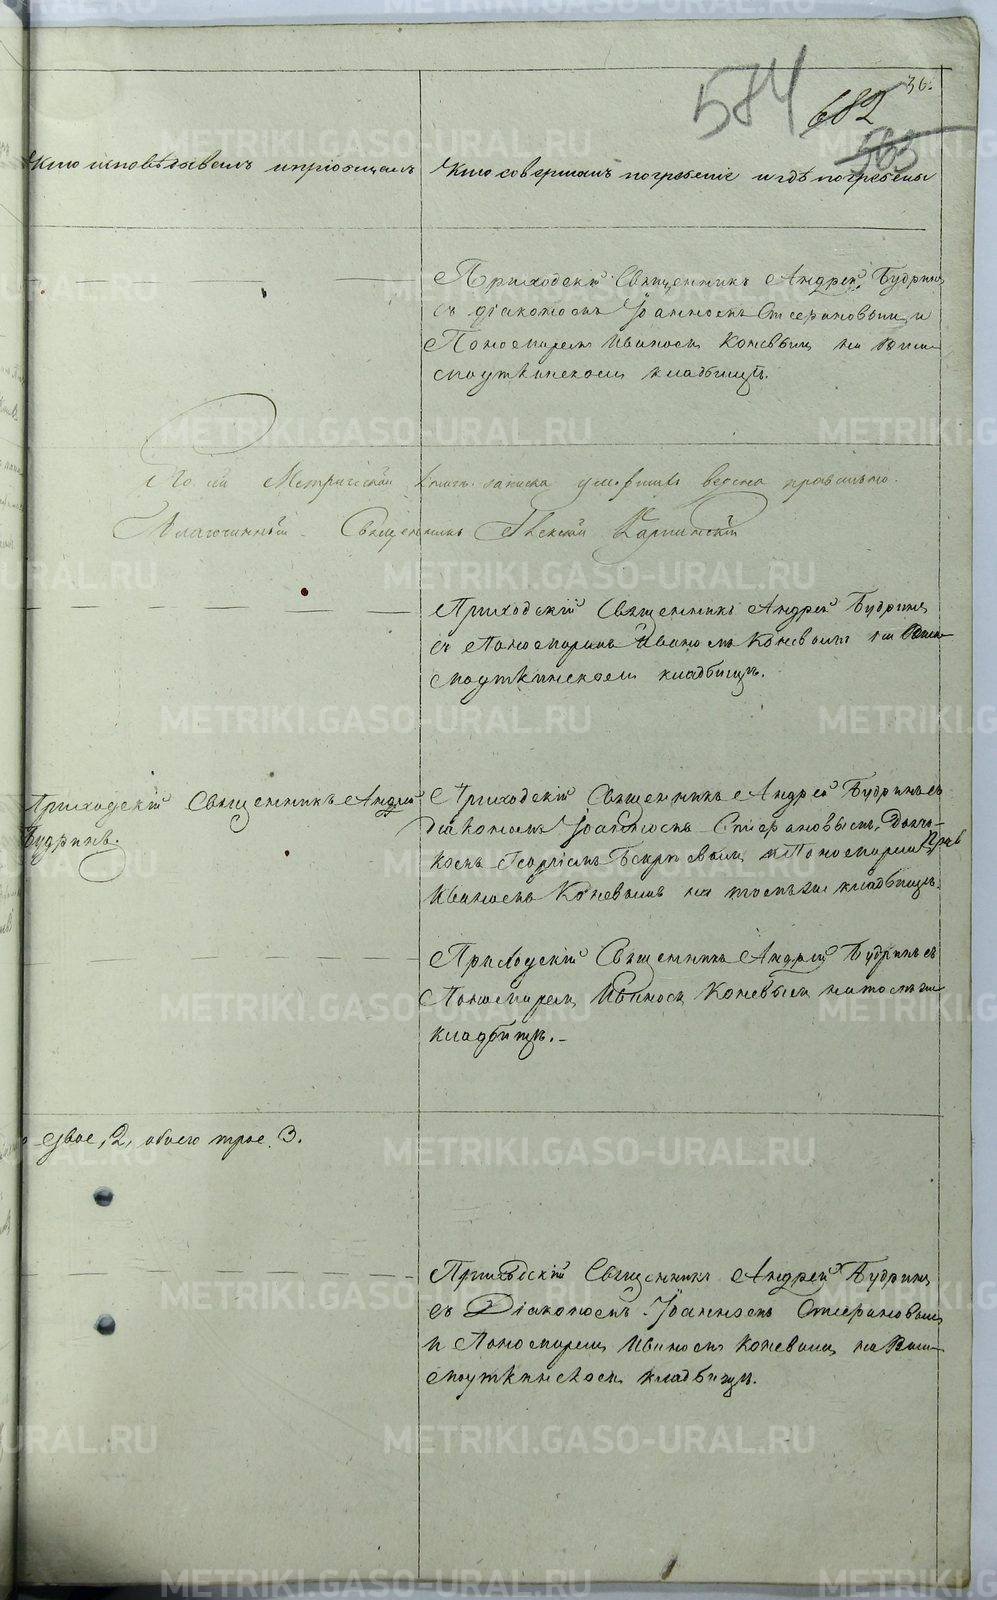 584
682
36.
563
Кто исповѣдывалъ и пріобщалъ
Кто совершалъ погребеніе и гдѣ погребены
Приходскій Священникъ Андрей Будринъ
съ діакономъ Іоанномъ Стефановымъ и
Пономаремъ Иваномъ Коневымъ на
кладбищѣ.
По сей Метрической книгѣ записка умершихъ ведена правильно.
Благочинный Священникъ
Приходскій Священникъ Андрей Будринъ
съ Пономаремъ Иваномъ Коневымъ на
кладбищѣ.
Приходскій Священникъ Андрей
Будринъ.
Приходскій Священникъ Андрей Будринъ съ
діакономъ Іоанномъ Стефановымъ, Дьяч-
комъ Георгіемъ и Пономаремъ
Иваномъ Коневымъ на томъ же кладбищѣ.
Приходскій Священникъ Андрей Будринъ съ
Пономаремъ Иваномъ Коневымъ на томъ же
кладбищѣ.-
двое, 2, обоего трое. 3.
Приходскій Священникъ Андрей Будринъ
съ Діакономъ Іоанномъ Стефановымъ
и Пономаремъ Иваномъ Коневымъ на
кладбищѣ.
METRIKI.GASO-URAL.RU